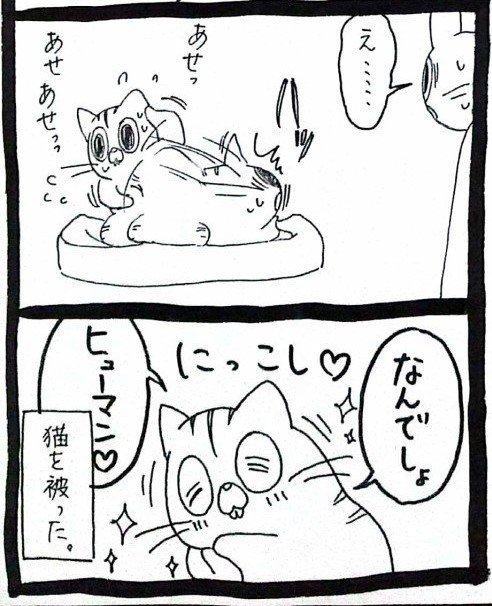 え……
あせっ
あせあせっっ
なんでしょ
にっこし♡
ヒューマン♡
猫を被った。